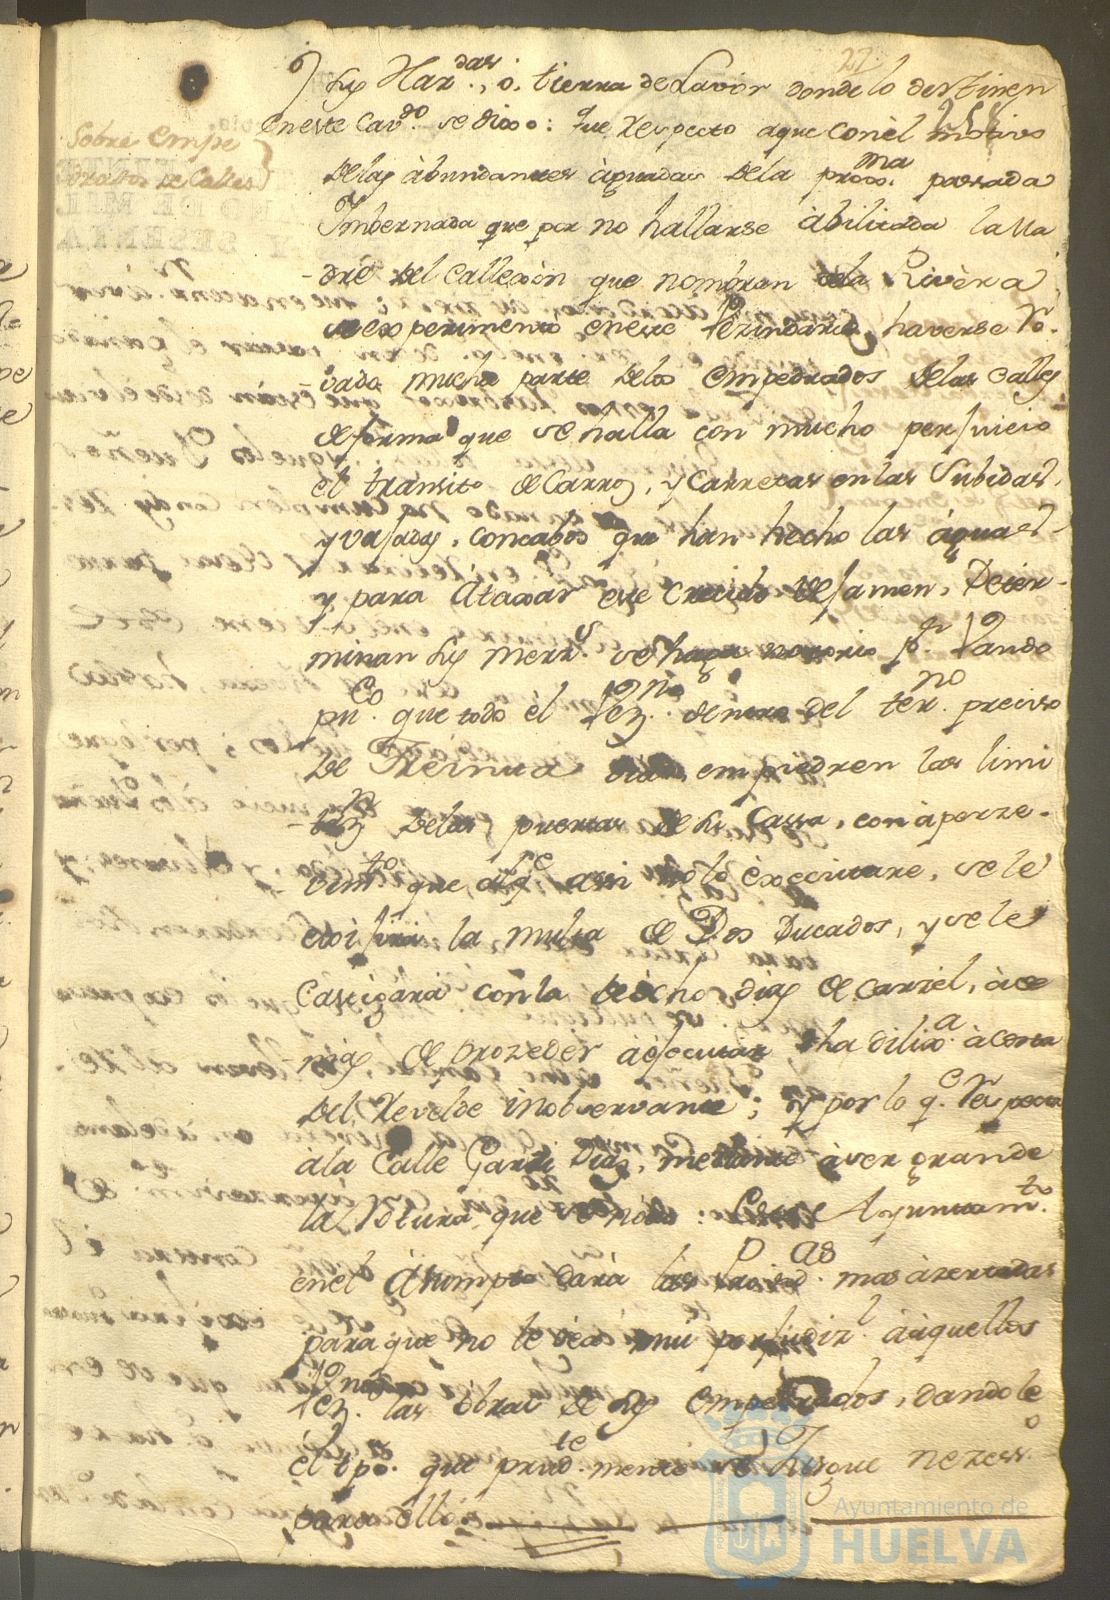 27.
sus Har.das, ó, tierra de Lavor donde lo destinen
Sobre Empe
drados de Calles
En este Cav.do se dixo: que respecto a que con el motivo
de las abundantes aguadas de la prox.ma passada
Imbernada que por no hallarse abilitada la Ma
dre del Callexon que nombran de la Rivera
se experimento en este Vezindario, haverse Ro-
vado mucha parte de los empedrados de las calles
de forma que se halla con mucho perjuicio
el transito de Carros, y Carretas en las Subidas,
y vajadas, concabos que han hecho las aguas
y para Ataxar este crecido Desamen, Deter-
minan sus merz.s se haga notorio p.r Vando
pu.co que todo el Vez.no dentro del ter.no preciso
de Treinta dias empiedren las limi
tes de las puertas de su Cassa, con aperze-
vim.to que, al q.e assi no lo executare, se le
exijira la multa de Dos Ducados, y se le
Castigará con la de ocho dias de carzel, a de
mas de prozeder a ejecutar dha dilix.a a costa
del Revelde inobservante; y por lo q.e respecta
a la Calle Garzi Diaz, mediante a ver grande
la Rotura, que se noto: Este Ayuntam.to
en el Asumpto dará las provid.as mas azertadas
para que no le sea mui perjudiz.l a aquellos
Vez.nos las obras de sus empedrados, dandole
el tpo. que prud.te mente se Jusgue nezess.o
para ello
Ayuntamiento de
HUELVA